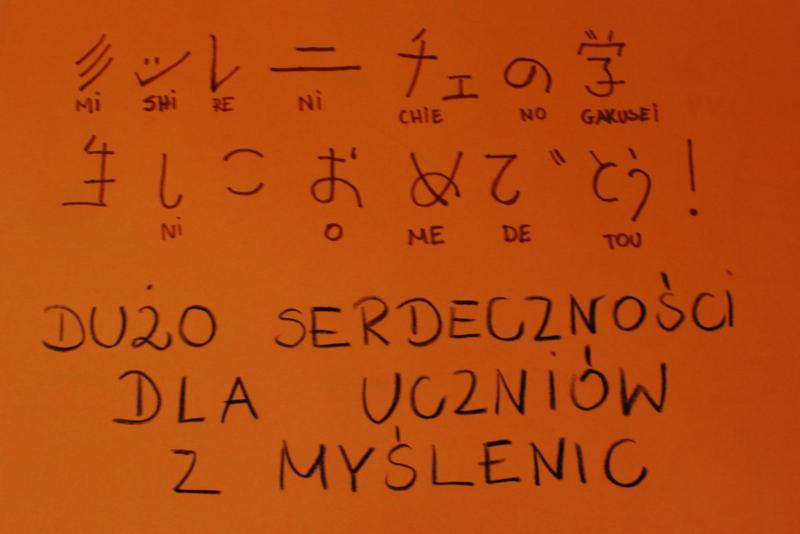 ミッレニチェの学
MI SHI RE NI CHIE NO GAKUSEI
生しこおめでとう!
NI O ME DE TOU
DUŻO SERDECZNOŚCI
DLA UCZNIÓW
Z MYŚLENIC